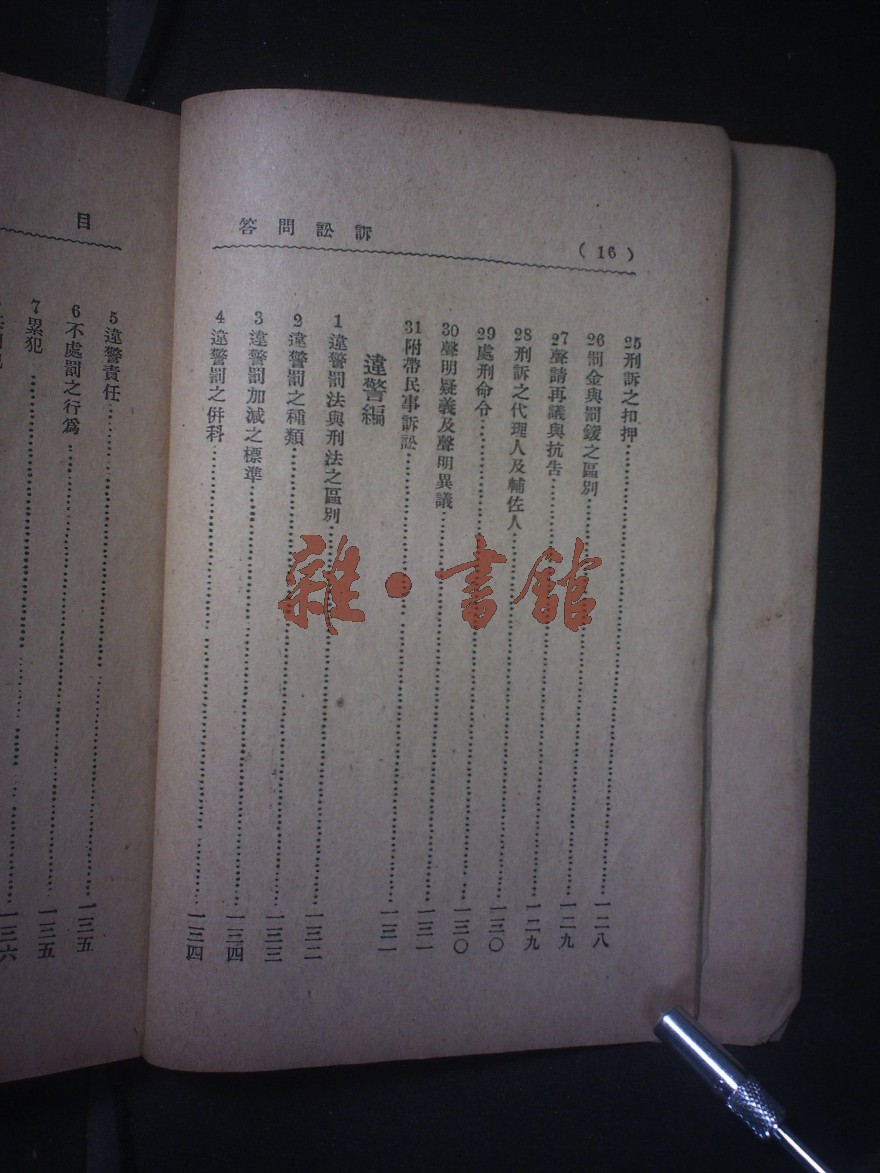 訴訟問答
(16)
25刑訴之扣押……一二八
26罰金與罰鍰之區別……一二九
27聲請再議與抗告……一二九
28刑訴之代理人及輔佐人……一三〇
29處刑命令……一三〇
30聲明疑義及聲明異議……一三一
31附帶民事訴訟……一三一
違警編
1違警罰法與刑法之區別……一三二
2違警罰之種類……一三三
3違警罰加減之標準……一三四
4違警罰之併科……一三四
目
5違警責任……一三五
6不處罰之行為……一三五
7累犯……一三六
雜·書館